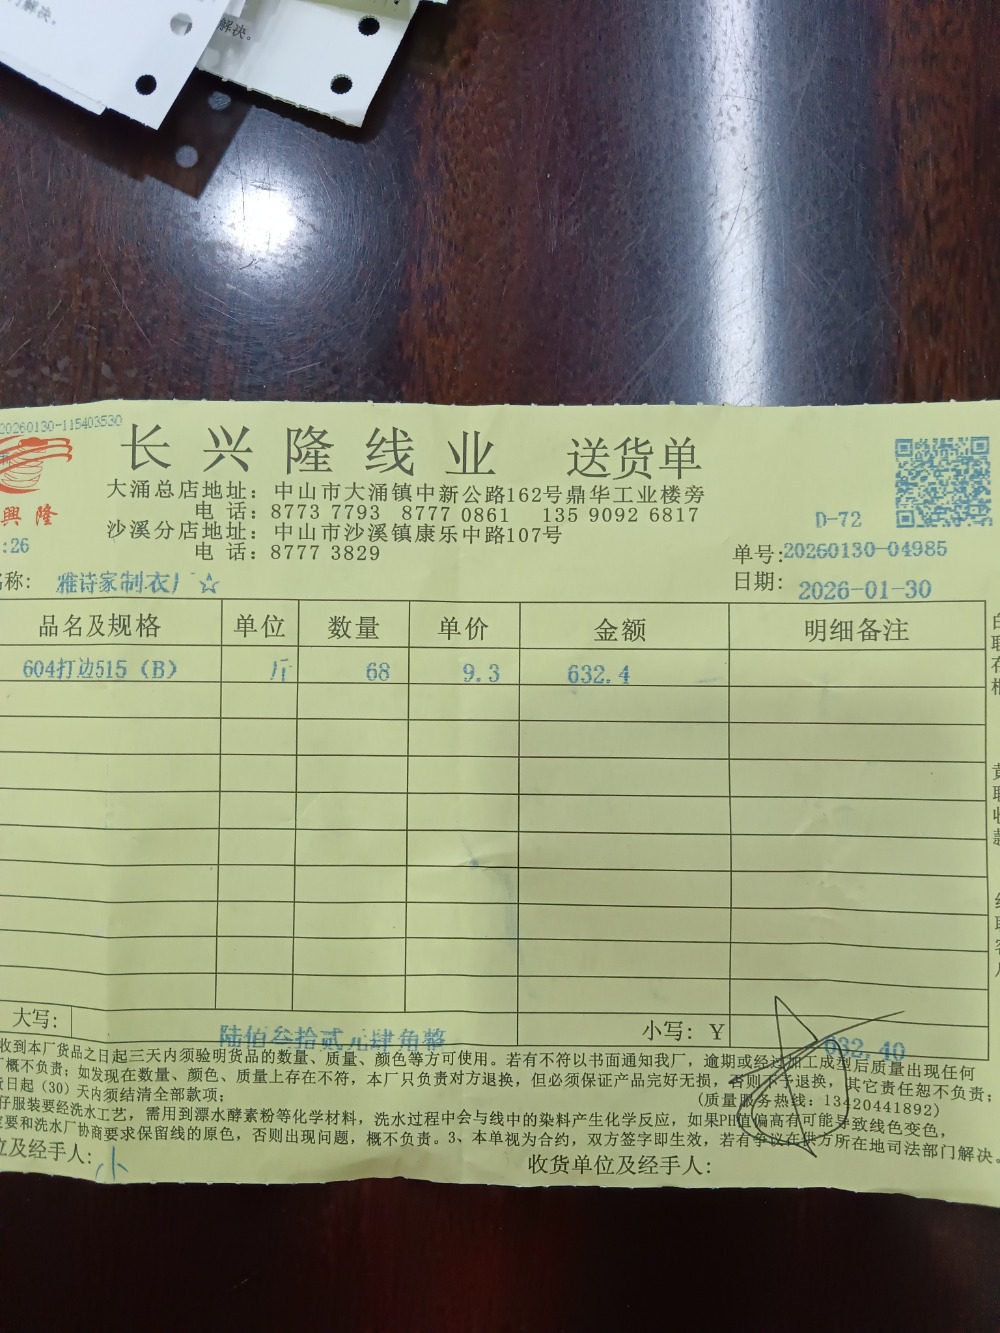 解决。
解决。
20260130-115403530
长兴隆线业 送货单
興隆
大涌总店地址：中山市大涌镇中新公路162号鼎华工业楼旁
电 话：8773 7793 8777 0861 135 9092 6817
沙溪分店地址：中山市沙溪镇康乐中路107号
电 话：8777 3829
D-72
:26
单号:20260130-04985
名称: 雅诗家制衣厂☆
日期: 2026-01-30
品名及规格 单位 数量 单价 金额 明细备注
604打边515（B） 斤 68 9.3 632.4
大写: 陆佰叁拾贰元肆角整 小写: Y 632.40
收到本厂货品之日起三天内须验明货品的数量、质量、颜色等方可使用。若有不符以书面通知我厂，逾期或经过加工成型后质量出现任何
厂概不负责；如发现在数量、颜色、质量上存在不符，本厂只负责对方退换，但必须保证产品完好无损，否则不予退换，其它责任恕不负责；
日起（30）天内须结清全部款项； (质量服务热线：13420441892)
仔服装要经洗水工艺，需用到漂水酵素粉等化学材料，洗水过程中会与线中的染料产生化学反应，如果PH值偏高有可能导致线色变色，
要和洗水厂协商要求保留线的原色，否则出现问题，概不负责。3、本单视为合约，双方签字即生效，若有争议在供方所在地司法部门解决。
位及经手人: 小 收货单位及经手人: